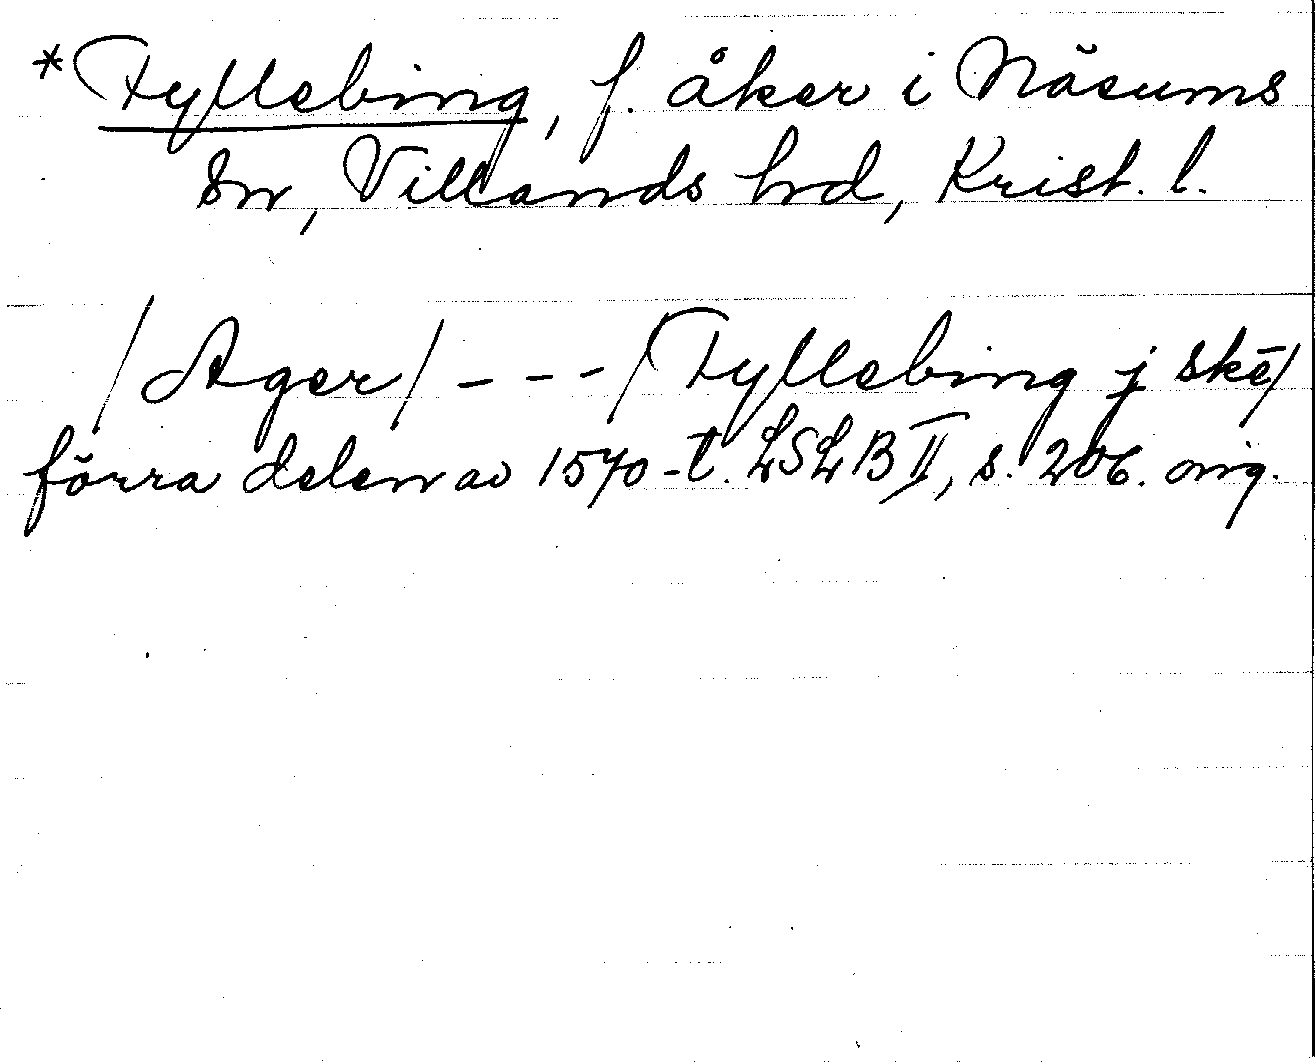 *Fyllebing, f. åker i Näsums
sn, Villands hrd, Krist. l.
/Ager/ - - - /Fyllebing j skē/
förra delen av 1570-t. LSLB II, s. 206. orig.